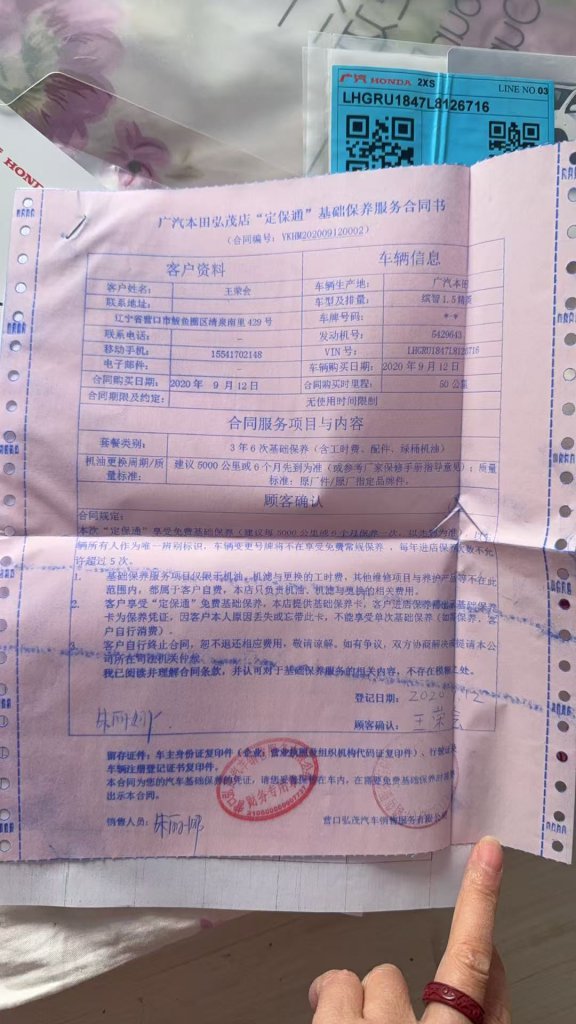 广汽 HONDA 2XS LINE NO 03
LHGRU1847L8126716
HON
广汽本田弘茂店“定保通”基础保养服务合同书
(合同编号: YKHM202009120002)
客户资料 车辆信息
客户姓名: 王荣会 车辆生产地: 广汽本田
联系地址: 车型及排量: 缤智1.5精英
辽宁省营口市鲅鱼圈区清泉南里429号 车牌号码: *-*
联系电话: - 发动机号: 5429643
移动手机: 15541702148 VIN号: LHGRU1847L8126716
电子邮件: - 车辆购买日期: 2020年9月12日
合同购买日期: 2020年 9月12日 合同购买时里程: 50公里
合同期限及约定: 无使用时间限制
合同服务项目与内容
套餐类别: 3年6次基础保养(含工时费、配件、绿桶机油)
机油更换周期/质量标准: 建议5000公里或6个月先到为准(或参考厂家保修手册指导意见);质量
标准:原厂件/原厂指定品牌件。
顾客确认
合同规定:
本次“定保通”享受免费基础保养(建议每5000公里或6个月保养一次,以先到为准
辆所有人作为唯一辨别标识,车辆变更号牌将不在享受免费常规保养,每年进店保养次数不允
许超过5次。
1. 基础保养服务项目仅限示机油,机滤与更换的工时费,其他维修项目与养护产品等不在此
范围内,都属于客户自费,本店只负责机油、机滤与更换的相关费用。
2. 客户享受“定保通”免费基础保养,本店提供基础保养卡,客户进店保养需出示基础保养
卡为保养凭证,因客户本人原因丢失或忘带此卡,不能享受单次基础保养(如需保养,客
户自行消费)。
3. 客户自行终止合同,恕不退还相应费用,敬请谅解。如有争议,双方协商解决或提请本公
司所在司法机关仲裁
我已阅读并理解合同条款,并认可对于基础保养服务的相关内容,不存在模糊之处。
登记日期:
朱丽娜 顾客确认: 王荣会
留存证件:车主身份证复印件(企业:营业执照及组织机构代证复印件)、行驶证及
车辆注册登记证书复印件。
本合同为您的汽车基础保养的凭证,请您妥善保存在车内,在需要免费基础保养时需要
出示本合同。
销售人员: 朱丽娜 营口弘茂汽车销售服务有限公
财务专用章